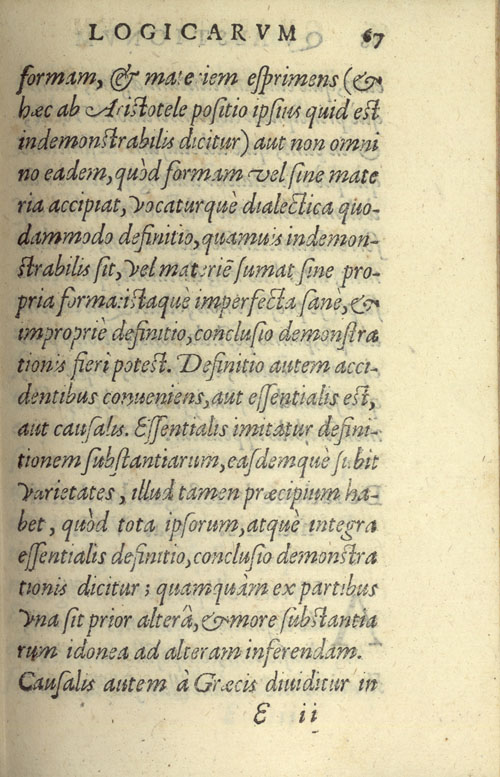 LOGICARVM 67
formam, & materiem esprimens (&
hæc ab Aristotele positio ipsius quid est
indemonstrabilis dicitur) aut non omni
no eadem, quòd formam vel sine mate
ria accipiat, vocaturquè dialectica quo-
dammodo definitio, quamuis indemon-
strabilis sit, vel materiē sumat sine pro-
pria forma: istaquè imperfecta sanè, &
impropriè definitio, conclusio demonstra
tionis fieri potest. Definitio autem acci-
dentibus conueniens, aut essentialis est,
aut causalis. Essentialis imitatur defini-
tionem substantiarum, easdemquè subit
varietates, illud tamen præcipium ha-
bet, quòd tota ipsorum, atquè integra
essentialis definitio, conclusio demonstra
tionis dicitur; quamquàm ex partibus
vna sit prior alterâ, & more substantia
rum idonea ad alteram inferendam.
Causalis autem à Græcis diuiditur in
E ii